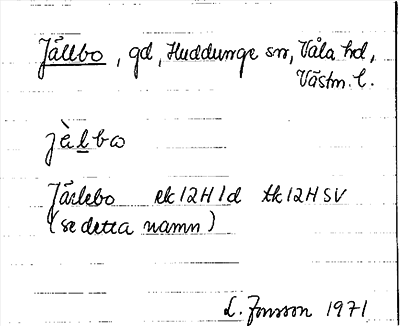 Jällbo, gd, Huddunge sn, Våla hd,
Västm. l.
jàlbω
Järlebo ek12H1d tk12HSV
(se detta namn)
L. Jonsson 1971